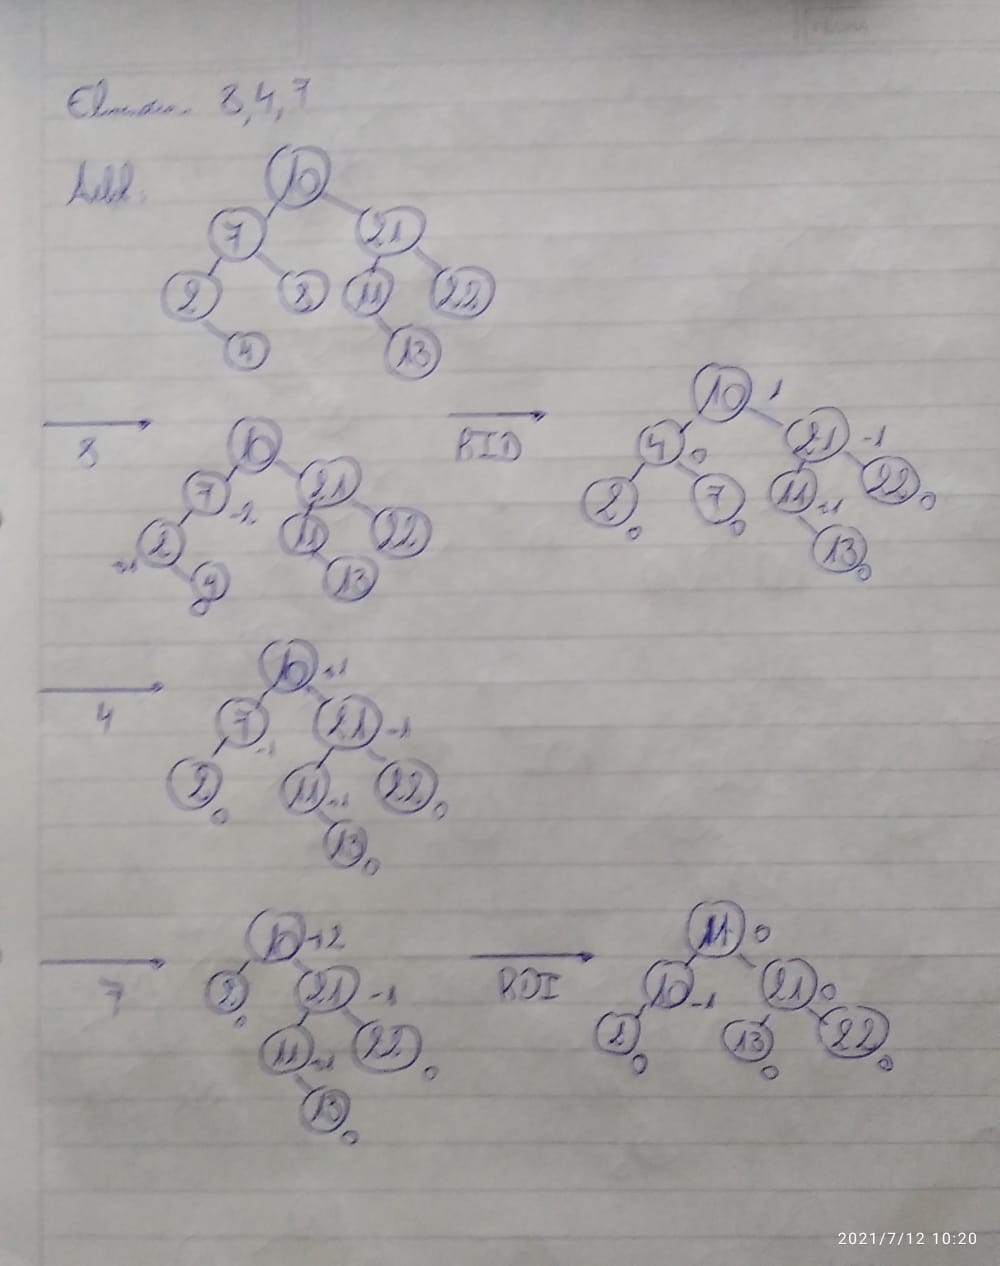 8,4,7
Add:
10
7 21
2 8 11 22
4 13
8
10
7 -2 21
2 +1 11 22
4 0 13
RID
10 1
4 0 21 -1
2 0 7 0 11 +1 22 0
13 0
4
10 +1
7 -1 21 -1
2 0 11 +1 22 0
13 0
7
10 +2
2 0 21 -1
11 +1 22 0
13 0
RDI
11 0
10 -1 21 0
2 0 13 0 22 0
2021/7/12 10:20